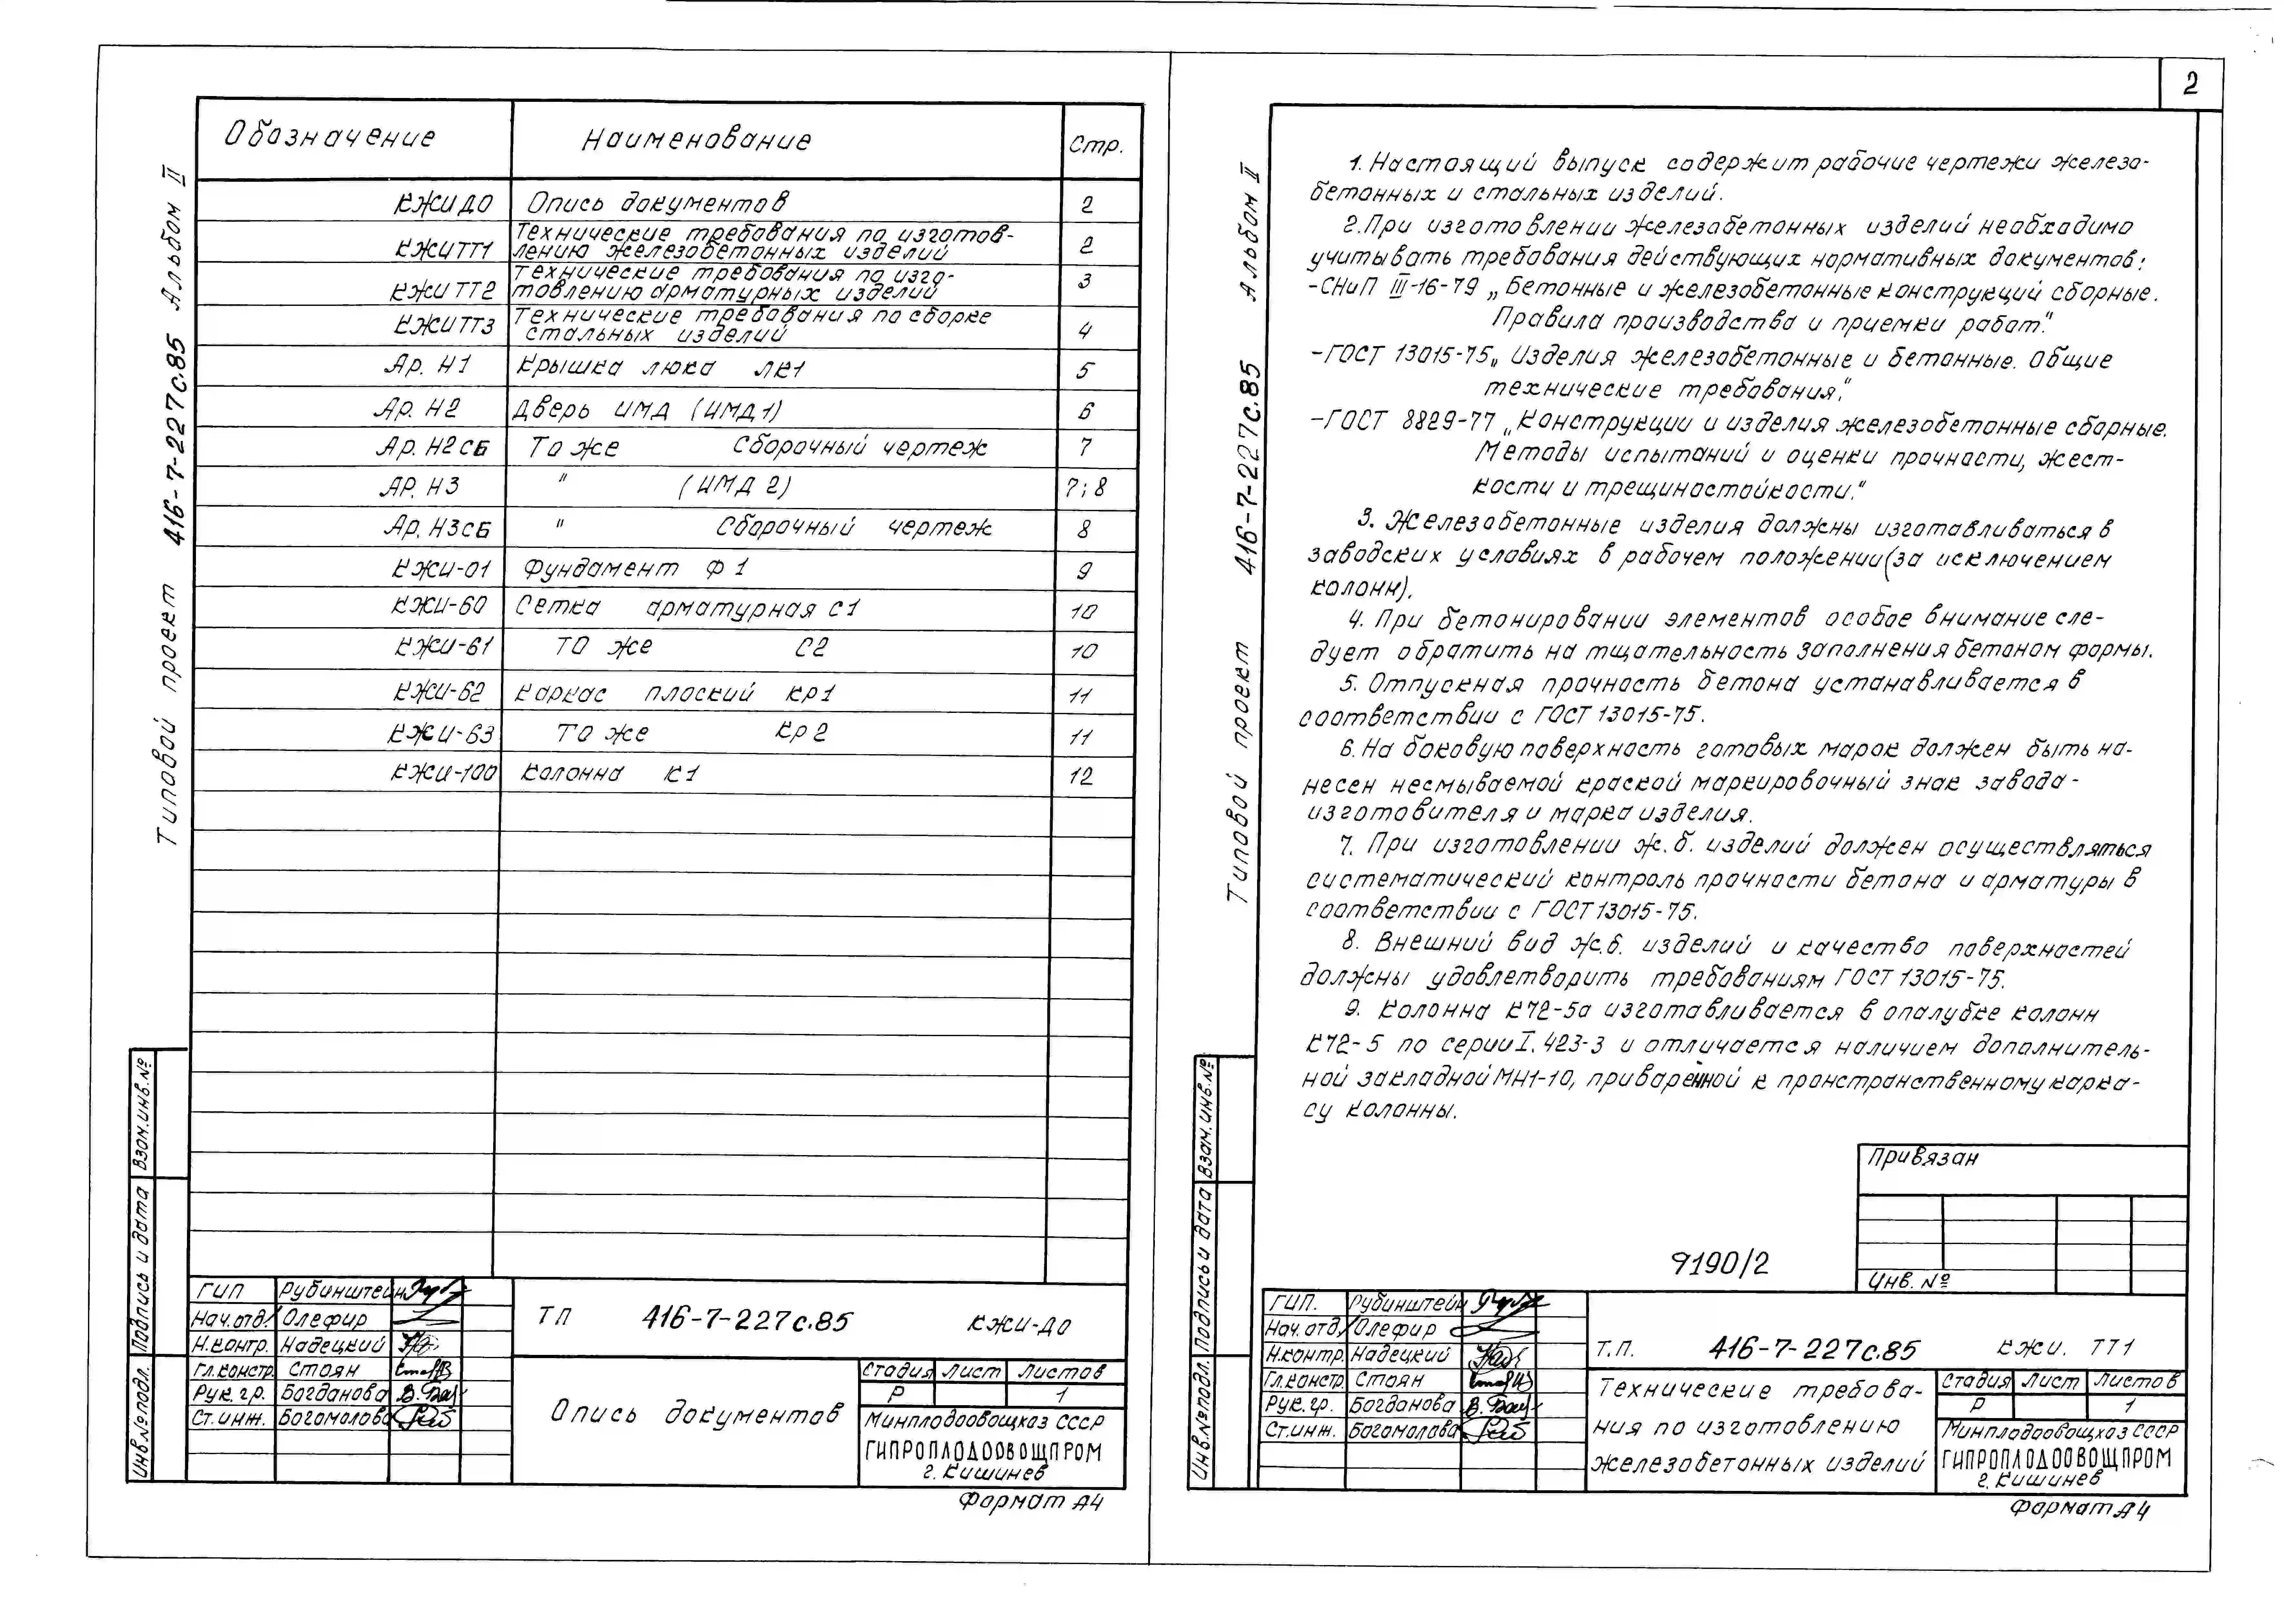 2
Типовой проект 416-7-227с.85 Альбом II
Обозначение Наименование Стр.
КЖИ ДО Опись документов 2
КЖИ ТТ1 Технические требования по изготов-
лению железобетонных изделий 2
КЖИ ТТ2 Технические требования по изго-
товлению арматурных изделий 3
КЖИ ТТ3 Технические требования по сборке
стальных изделий 4
Ар. И1 Крышка люка ЛК1 5
Ар. И2 Дверь ИМД (ИМД1) 6
Ар. И2СБ То же Сборочный чертеж 7
АР. И3 " (ИМД 2) 7; 8
Ар. И3СБ " Сборочный чертеж 8
КЖИ-01 Фундамент Ф 1 9
КЖИ-60 Сетка арматурная С1 10
КЖИ-61 ТО же С2 10
КЖИ-62 Каркас плоский КР1 11
КЖИ-63 ТО же КР2 11
КЖИ-100 Колонна К1 12
Взам.инв.№
Подпись и дата
Инв.№подл.
ГИП Рубинштейн
Нач.отд. Олефир
Н.контр. Надецкий
Гл.констр. Стоян
Рук. гр. Богданова
Ст.инж. Богомолова
ТП 416-7-227с.85 КЖИ-ДО
Опись документов
Стадия Лист Листов
Р 1
Минплодоовощхоз СССР
ГИПРОПЛОДООВОЩПРОМ
г. Кишинев
Формат А4
Типовой проект 416-7-227с.85 Альбом II
1. Настоящий выпуск содержит рабочие чертежи железо-
бетонных и стальных изделий.
2. При изготовлении железобетонных изделий необходимо
учитывать требования действующих нормативных документов:
-СНиП III-16-79 „Бетонные и железобетонные конструкций сборные.
Правила производства и приемки работ."
-ГОСТ 13015-75„ Изделия железобетонные и бетонные. Общие
технические требования."
-ГОСТ 8829-77 „Конструкции и изделия железобетонные сборные.
Методы испытаний и оценки прочности, жест-
кости и трещиностойкости."
3. Железобетонные изделия должны изготавливаться в
заводских условиях в рабочем положении(за исключением
колонн).
4. При бетонировании элементов особое внимание сле-
дует обратить на тщательность заполнения бетоном формы.
5. Отпускная прочность бетона устанавливается в
соответствии с ГОСТ 13015-75.
6. На боковую поверхность готовых марок должен быть на-
несен несмываемой краской маркировочный знак завода-
изготовителя и марка изделия.
7. При изготовлении ж.б. изделий должен осуществляться
систематический контроль прочности бетона и арматуры в
соответствии с ГОСТ 13015-75.
8. Внешний вид ж.б. изделий и качество поверхностей
должны удовлетворить требованиям ГОСТ 13015-75.
9. Колонна К72-5а изготавливается в опалубке колонн
К72-5 по серии I.423-3 и отличается наличием дополнитель-
ной закладной МН1-10, приваренной к пронстранственному карка-
су колонны.
Привязан
Инв. №
9190/2
Взам.инв.№
Подпись и дата
Инв.№подл.
ГИП. Рубинштейн
Нач. отд. Олефир
Н.контр. Надецкий
Гл.констр. Стоян
Рук. гр. Богданова
Ст.инж. Богомолова
Т.П. 416-7-227с.85 КЖИ. ТТ1
Технические требова-
ния по изготовлению
железобетонных изделий
Стадия Лист Листов
Р 1
Минплодоовощхоз СССР
ГИПРОПЛОДООВОЩПРОМ
г. Кишинев
Формат А4